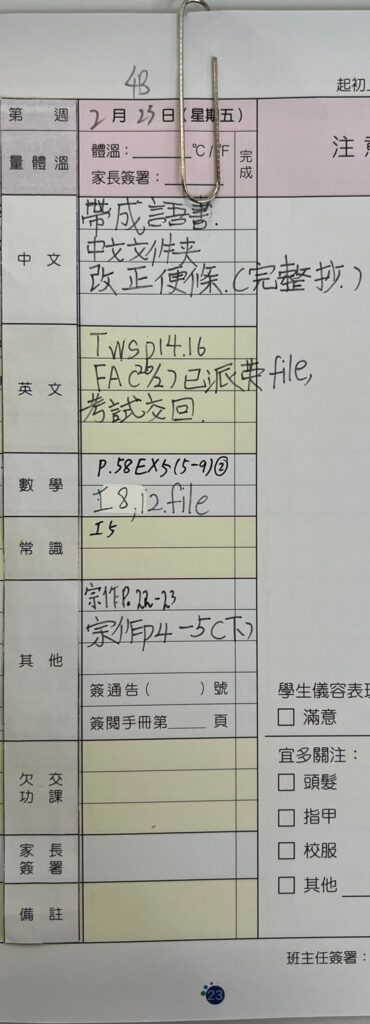 4B
起初
第 週 2月23日(星期五)
量體溫 體溫：______℃/℉ 完成 注意
家長簽署：______
中文 帶成語書.
中文文件夾
改正便條.(完整抄.)
英文 Twsp14.16
FA(26/2)已派黄file,
考試交回.
數學 P.58EX5(5-9)②
I8,i2.file
常識 I5
其他 宗作P.22-23
宗作p4-5(下)
簽通告( )號
簽閱手冊第_____頁
學生儀容表現
□ 滿意
欠交功課
宜多關注：
□ 頭髮
□ 指甲
□ 校服
□ 其他
家長簽署
備註
班主任簽署：
23